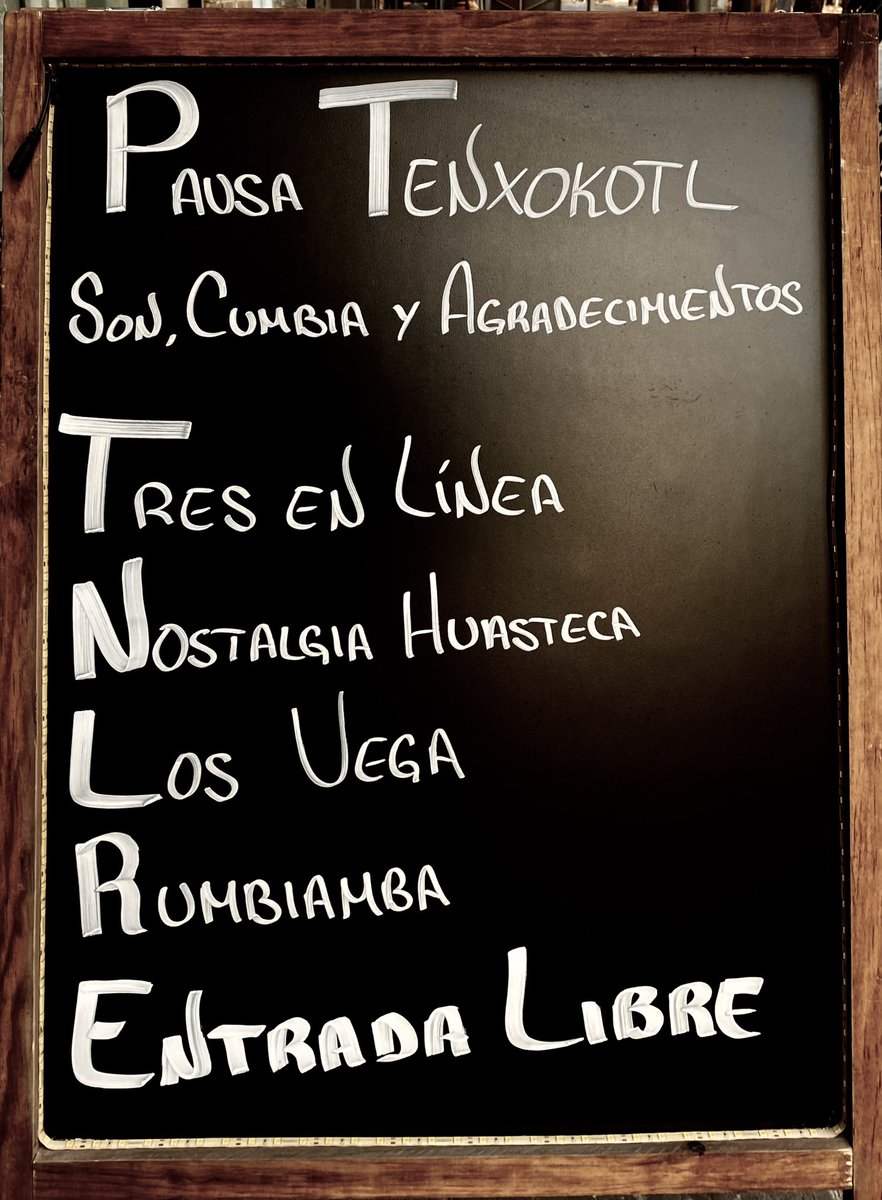 PAUSA TENXOKOTL
SON, CUMBIA Y AGRADECIMIENTOS
TRES EN LÍNEA
NOSTALGIA HUASTECA
LOS VEGA
RUMBIAMBA
ENTRADA LIBRE